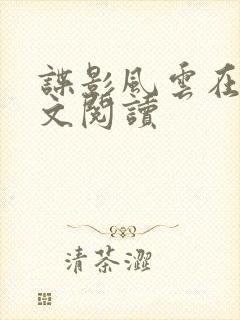 諜影風雲在
文閱讀
清茶澀